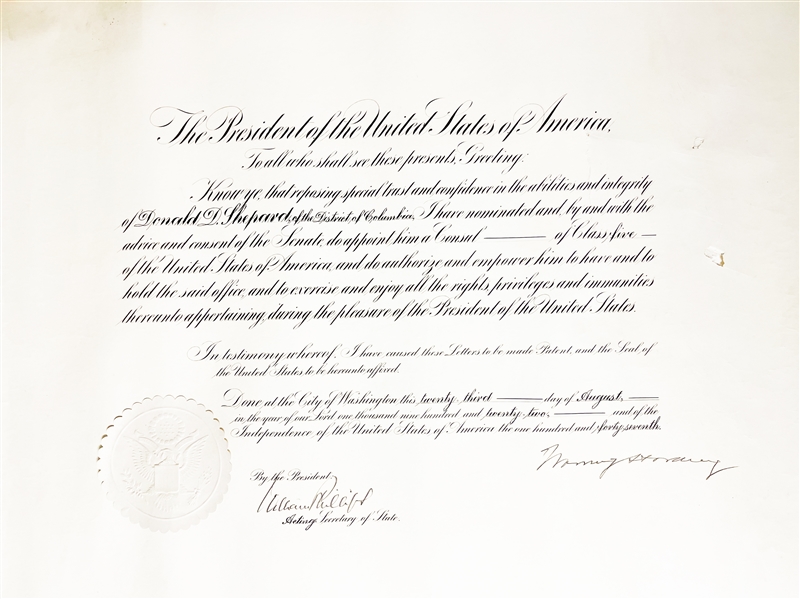 The President of the United States of America,
To all who shall see these presents, Greeting:
Know ye, that reposing special trust and confidence in the abilities and integrity
of Donald D. Shepard, of the District of Columbia, I have nominated and, by and with the
advice and consent of the Senate, do appoint him a Consul ——— of Class five —
of the United States of America, and do authorize and empower him to have and to
hold the said office, and to exercise and enjoy all the rights, privileges and immunities
thereunto appertaining, during the pleasure of the President of the United States.
In testimony whereof, I have caused these Letters to be made Patent, and the Seal of
the United States to be hereunto affixed.
Done at the City of Washington this twenty third ——— day of August, ——
in the year of our Lord one thousand nine hundred and twenty two, ——— and of the
Independence of the United States of America the one hundred and forty seventh.
Warren G Harding
By the President:
William Phillips
Acting Secretary of State.